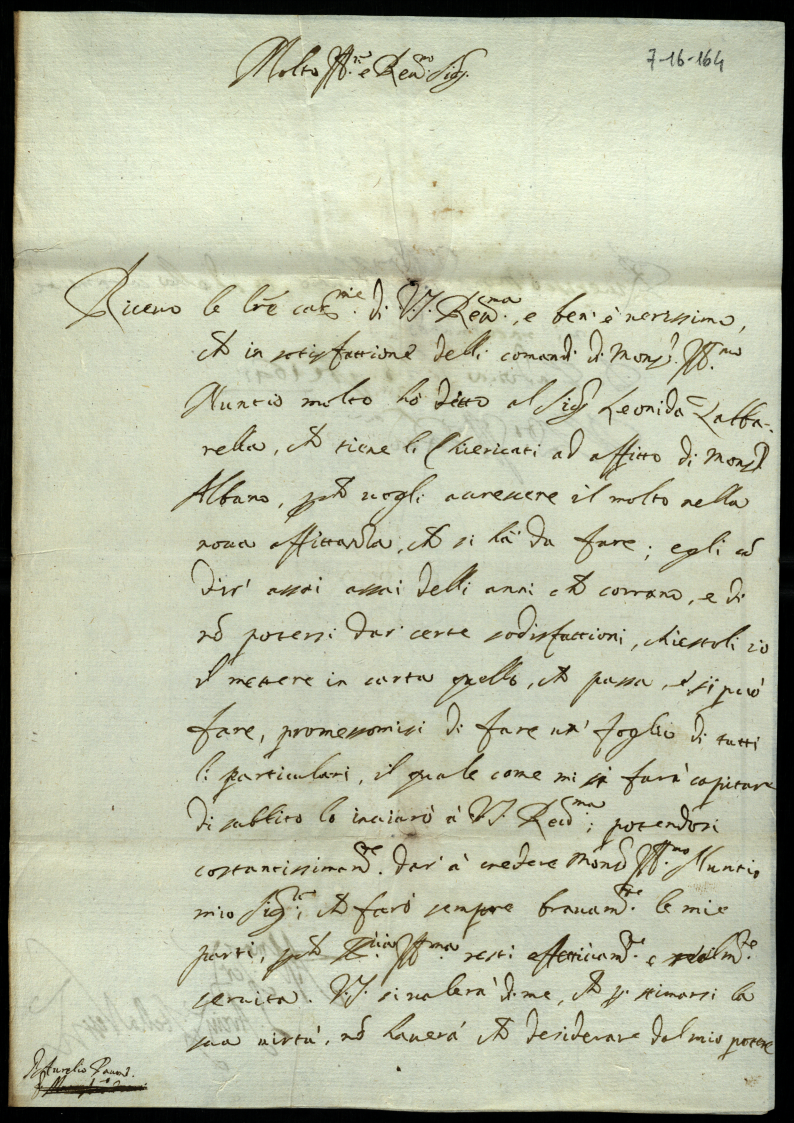 7-16-164
Molto Ill.re e Rev.mo Sig.
Riceuo le lr̃e car.me di V.S. Reu.ma, e ben' è uerissimo,
ch̃ in sotisfattione delli comandi di Mons.r Ill.mo
Nuntio molto hò detto al Sig.r Leonida Zabba-
rella, ch̃ tiene li Chiericati ad affitto di Mons.r
Albano, p̱ch̃ uogli accressere il molto nella
noua affittanza, ch̃ si hà da fare; egli cõ
dir' assai assai delli anni ch̃ corrano, e di
nõ potersi dar certe sodisfattioni, chiestoli io
il mettere in carta quello, ch̃ passa, e si può
fare, promessomisi di fare un' foglio di tutti
li particulari, il quale come mi farà capitare
di subbito lo inuiarò à V.S. Reu.ma; potendosi
costantissimam.te dar' à credere Mons.r Ill.mo Nuntio
mio Sig.re, ch̃ farò sempre brauam.te le mie
parti, p̱ch̃ S. Ill.ma resti effettiuam.te e realm.te
seruita. V.S. si ualerà di me, ch̃ p̱ stimarsi la
sua uirtù, nõ hauerà ch̃ desiderare dal mio potere
D. Aurelio